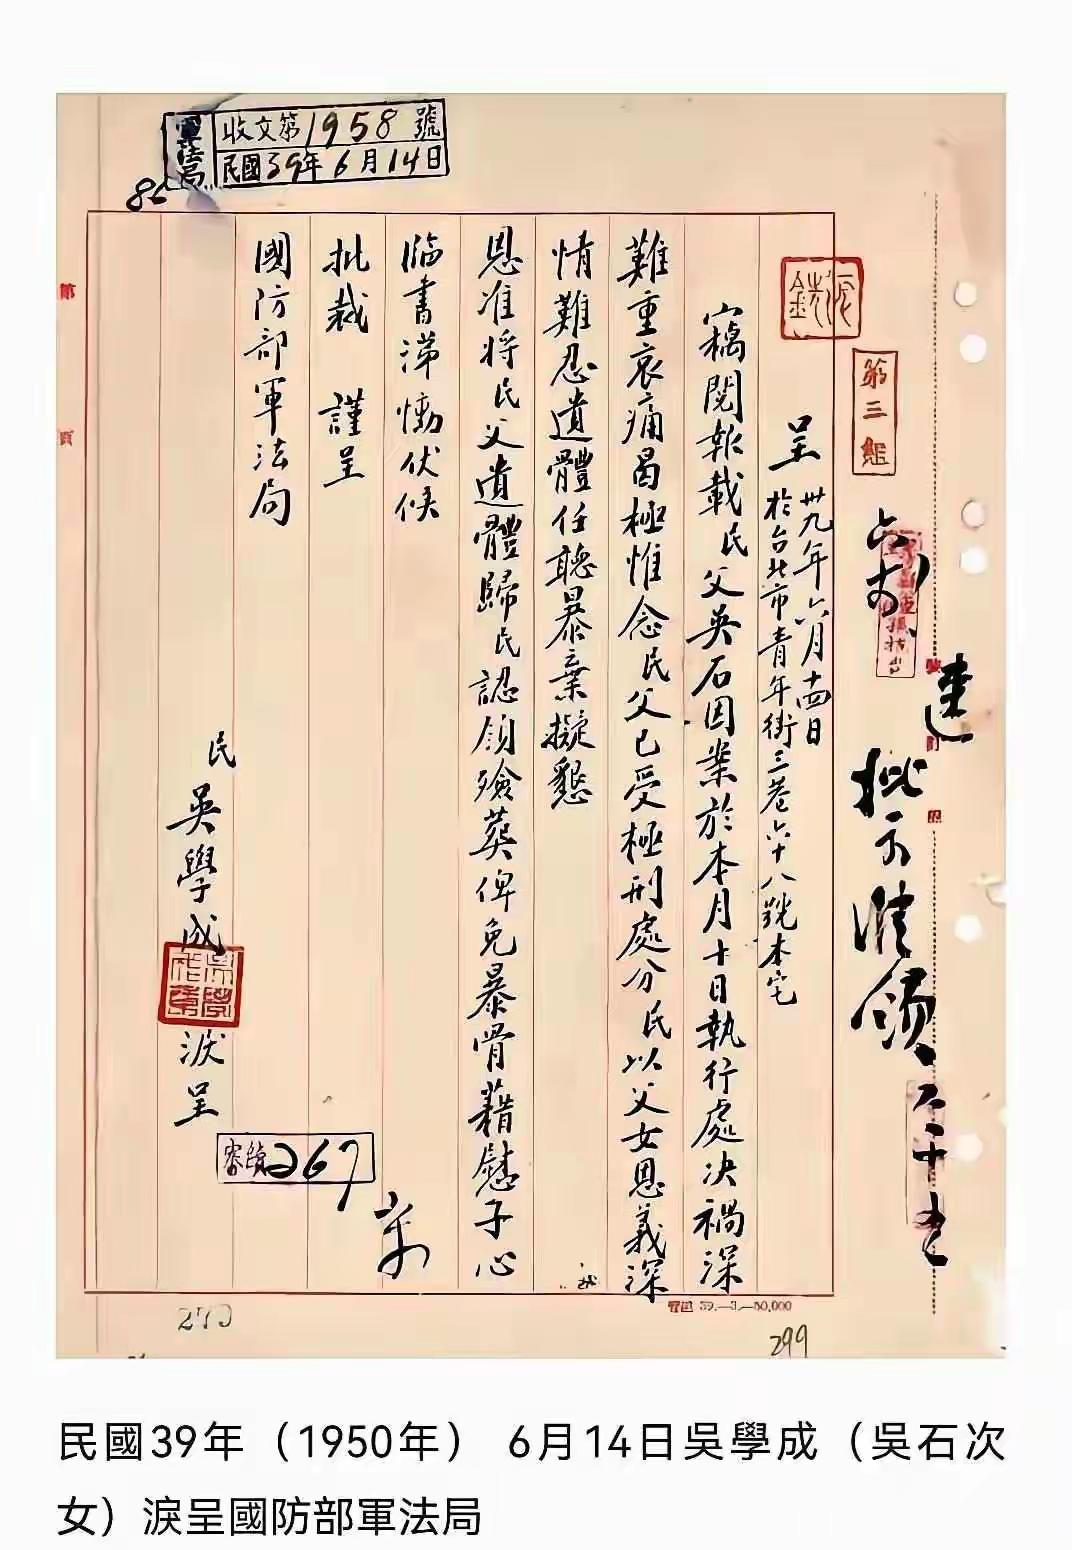 軍法局
收文第1958號
民國39年6月14日
第三組
呈
卅九年六月十四日
於台北市青年街三巷六十八號本宅
竊閱報載民父吳石因案於本月十日執行處決禍深
難重哀痛曷極惟念民父已受極刑處分民以父女恩義深
情難忍遺體任聽暴棄擬懇
恩准將民父遺體歸民認領殮葬俾免暴骨藉慰子心
臨書涕慟伏候
批裁 謹呈
國防部軍法局
民吳學成淚呈
批示准領
267
第 頁
39.—3.—50,000
270
299
民國39年（1950年） 6月14日吳學成（吳石次
女）淚呈國防部軍法局